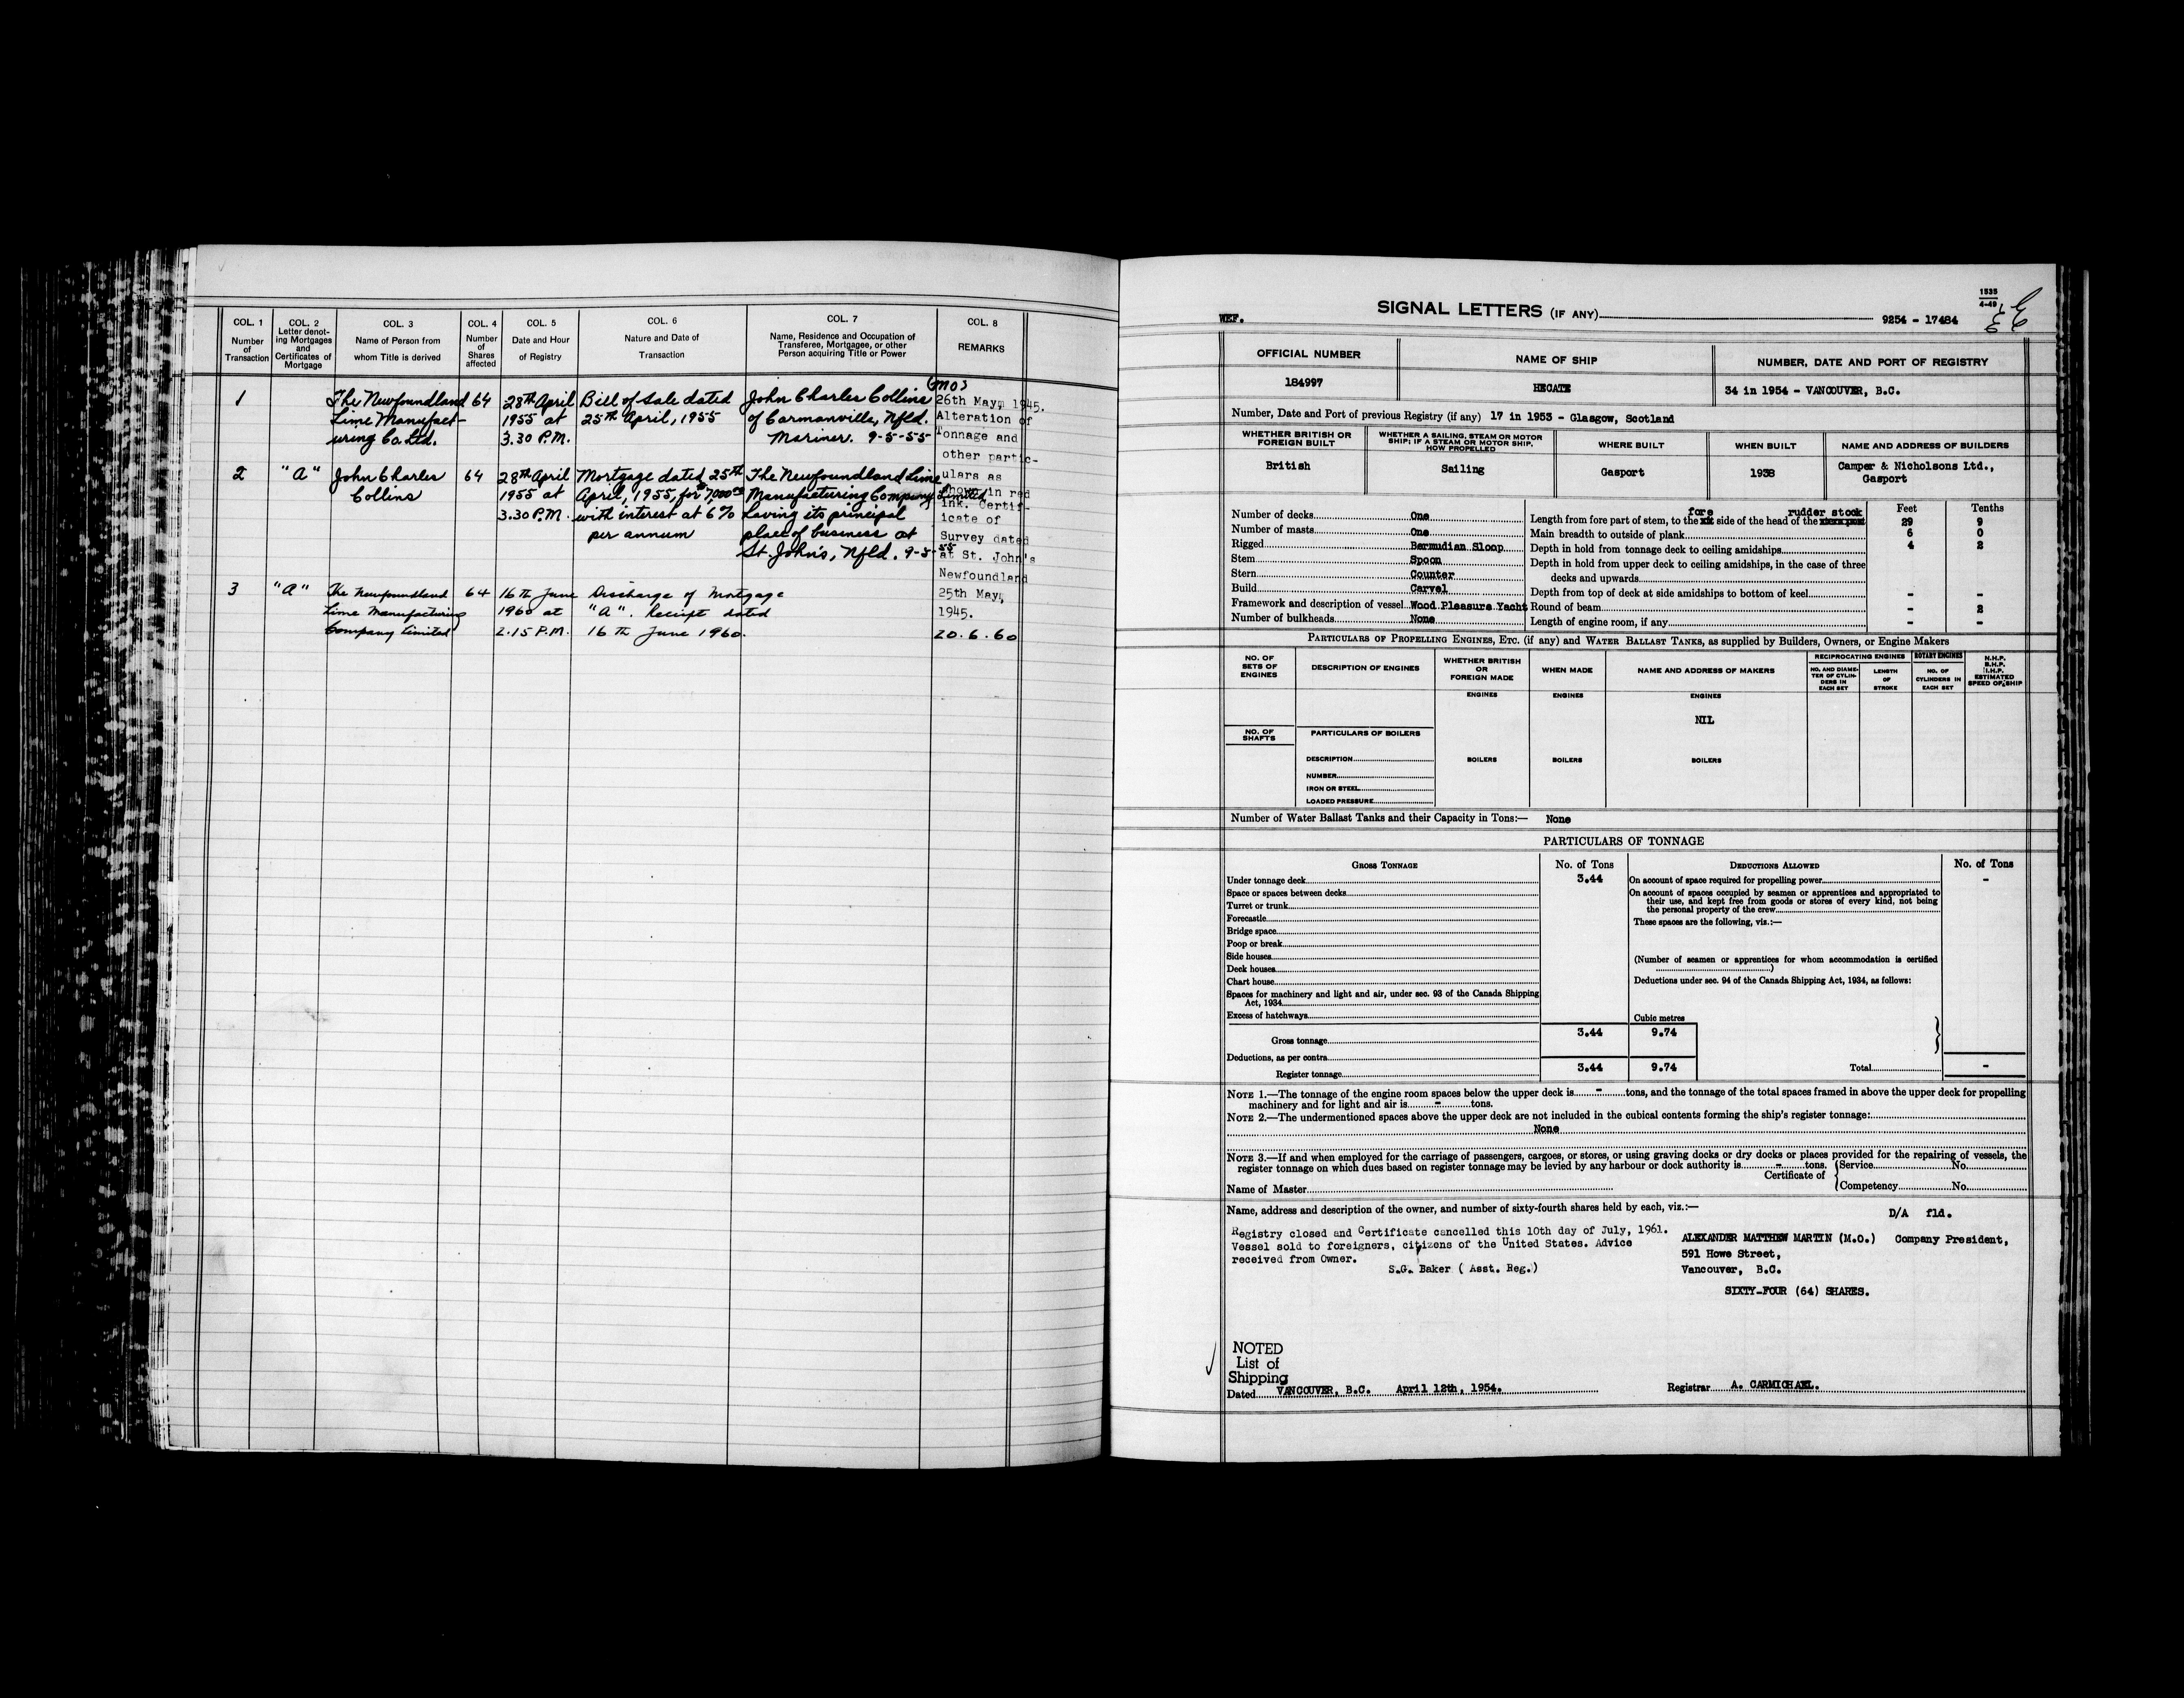 COL. 1
Number
of
Transaction
COL. 2
Letter denot-
ing Mortgages
and
Certificates of
Mortgage
COL. 3
Name of Person from
whom Title is derived
COL. 4
Number
of
Shares
affected
COL. 5
Date and Hour
of Registry
COL. 6
Nature and Date of
Transaction
COL. 7
Name, Residence and Occupation of
Transferee, Mortgagee, or other
Person acquiring Title or Power
COL. 8
REMARKS
1
The Newfoundland
Lime Manufact-
uring Co. Ltd.
64
28th April
1955 at
3.30 P.M.
Bill of Sale dated
25th April, 1955
(MO)
John Charles Collins
of Carmanville, Nfld.
Mariner. 9-5-55
2
"A"
John Charles
Collins
64
28th April
1955 at
3.30 P.M.
Mortgage dated 25th
April, 1955, for $7,000.00
with interest at 6%
per annum
The Newfoundland Lime
Manufacturing Company Limited
having its principal
place of business at
St. John's, Nfld. 9-5-55
3
"A"
The Newfoundland
Lime Manufacturing
Company Limited
64
16th June
1960 at
2.15 P.M.
Discharge of Mortgage
"A". Receipt dated
16th June 1960.
26th May, 1945.
Alteration of
Tonnage and
other partic-
ulars as
shown in red
ink. Certif-
icate of
Survey dated
at St. John's
Newfoundland
25th May,
1945.
20.6.60
1535
4-49
WEF.
SIGNAL LETTERS (IF ANY)
9254 - 17484
OFFICIAL NUMBER
NAME OF SHIP
NUMBER, DATE AND PORT OF REGISTRY
184997
HECATE
34 in 1954 - VANCOUVER, B.C.
Number, Date and Port of previous Registry (if any) 17 in 1953 - Glasgow, Scotland
WHETHER BRITISH OR
FOREIGN BUILT
WHETHER A SAILING, STEAM OR MOTOR
SHIP; IF A STEAM OR MOTOR SHIP,
HOW PROPELLED
WHERE BUILT
WHEN BUILT
NAME AND ADDRESS OF BUILDERS
British
Sailing
Gasport
1938
Camper & Nicholsons Ltd.,
Gasport
Number of decks One
Number of masts One
Rigged Bermudian Sloop
Stem Spoon
Stern Counter
Build Carvel
Framework and description of vessel Wood Pleasure Yacht
Number of bulkheads None
Feet
Tenths
fore rudder stock
Length from fore part of stem, to the side of the head of the 29 9
Main breadth to outside of plank 6 0
Depth in hold from tonnage deck to ceiling amidships 4 2
Depth in hold from upper deck to ceiling amidships, in the case of three
decks and upwards - -
Depth from top of deck at side amidships to bottom of keel
Round of beam - 2
Length of engine room, if any - -
PARTICULARS OF PROPELLING ENGINES, ETC. (if any) and WATER BALLAST TANKS, as supplied by Builders, Owners, or Engine Makers
NO. OF
SETS OF
ENGINES
DESCRIPTION OF ENGINES
WHETHER BRITISH
OR
FOREIGN MADE
WHEN MADE
NAME AND ADDRESS OF MAKERS
RECIPROCATING ENGINES
NO. AND DIAME-
TER OF CYLIN-
DERS IN
EACH SET
LENGTH
OF
STROKE
ROTARY ENGINES
NO. OF
CYLINDERS IN
EACH SET
N.H.P.
B.H.P.
I.H.P.
ESTIMATED
SPEED OF SHIP
ENGINES
ENGINES
ENGINES
NIL
NO. OF
SHAFTS
PARTICULARS OF BOILERS
DESCRIPTION
NUMBER
IRON OR STEEL
LOADED PRESSURE
BOILERS
BOILERS
BOILERS
Number of Water Ballast Tanks and their Capacity in Tons:— None
PARTICULARS OF TONNAGE
GROSS TONNAGE
No. of Tons
DEDUCTIONS ALLOWED
No. of Tons
Under tonnage deck 3.44
Space or spaces between decks
Turret or trunk
Forecastle
Bridge space
Poop or break
Side houses
Deck houses
Chart house
Spaces for machinery and light and air, under sec. 93 of the Canada Shipping
Act, 1934
Excess of hatchways
Cubic metres
Gross tonnage 3.44 9.74
Deductions, as per contra
Register tonnage 3.44 9.74
On account of space required for propelling power -
On account of spaces occupied by seamen or apprentices and appropriated to
their use, and kept free from goods or stores of every kind, not being
the personal property of the crew
These spaces are the following, viz.:—
(Number of seamen or apprentices for whom accommodation is certified
)
Deductions under sec. 94 of the Canada Shipping Act, 1934, as follows:
Total -
NOTE 1.—The tonnage of the engine room spaces below the upper deck is - tons, and the tonnage of the total spaces framed in above the upper deck for propelling
machinery and for light and air is - tons.
NOTE 2.—The undermentioned spaces above the upper deck are not included in the cubical contents forming the ship's register tonnage:
None
NOTE 3.—If and when employed for the carriage of passengers, cargoes, or stores, or using graving docks or dry docks or places provided for the repairing of vessels, the
register tonnage on which dues based on register tonnage may be levied by any harbour or dock authority is - tons.
Certificate of { Service No.
Competency No.
Name of Master
Name, address and description of the owner, and number of sixty-fourth shares held by each, viz.:—
D/A fld.
Registry closed and Certificate cancelled this 10th day of July, 1961.
Vessel sold to foreigners, citizens of the United States. Advice
received from Owner.
S.G. Baker ( Asst. Reg.)
ALEXANDER MATTHEW MARTIN (M.O.) Company President,
591 Howe Street,
Vancouver, B.C.
SIXTY-FOUR (64) SHARES.
NOTED
List of
Shipping
Dated VANCOUVER, B.C. April 12th, 1954.
Registrar A. CARMICHAEL.